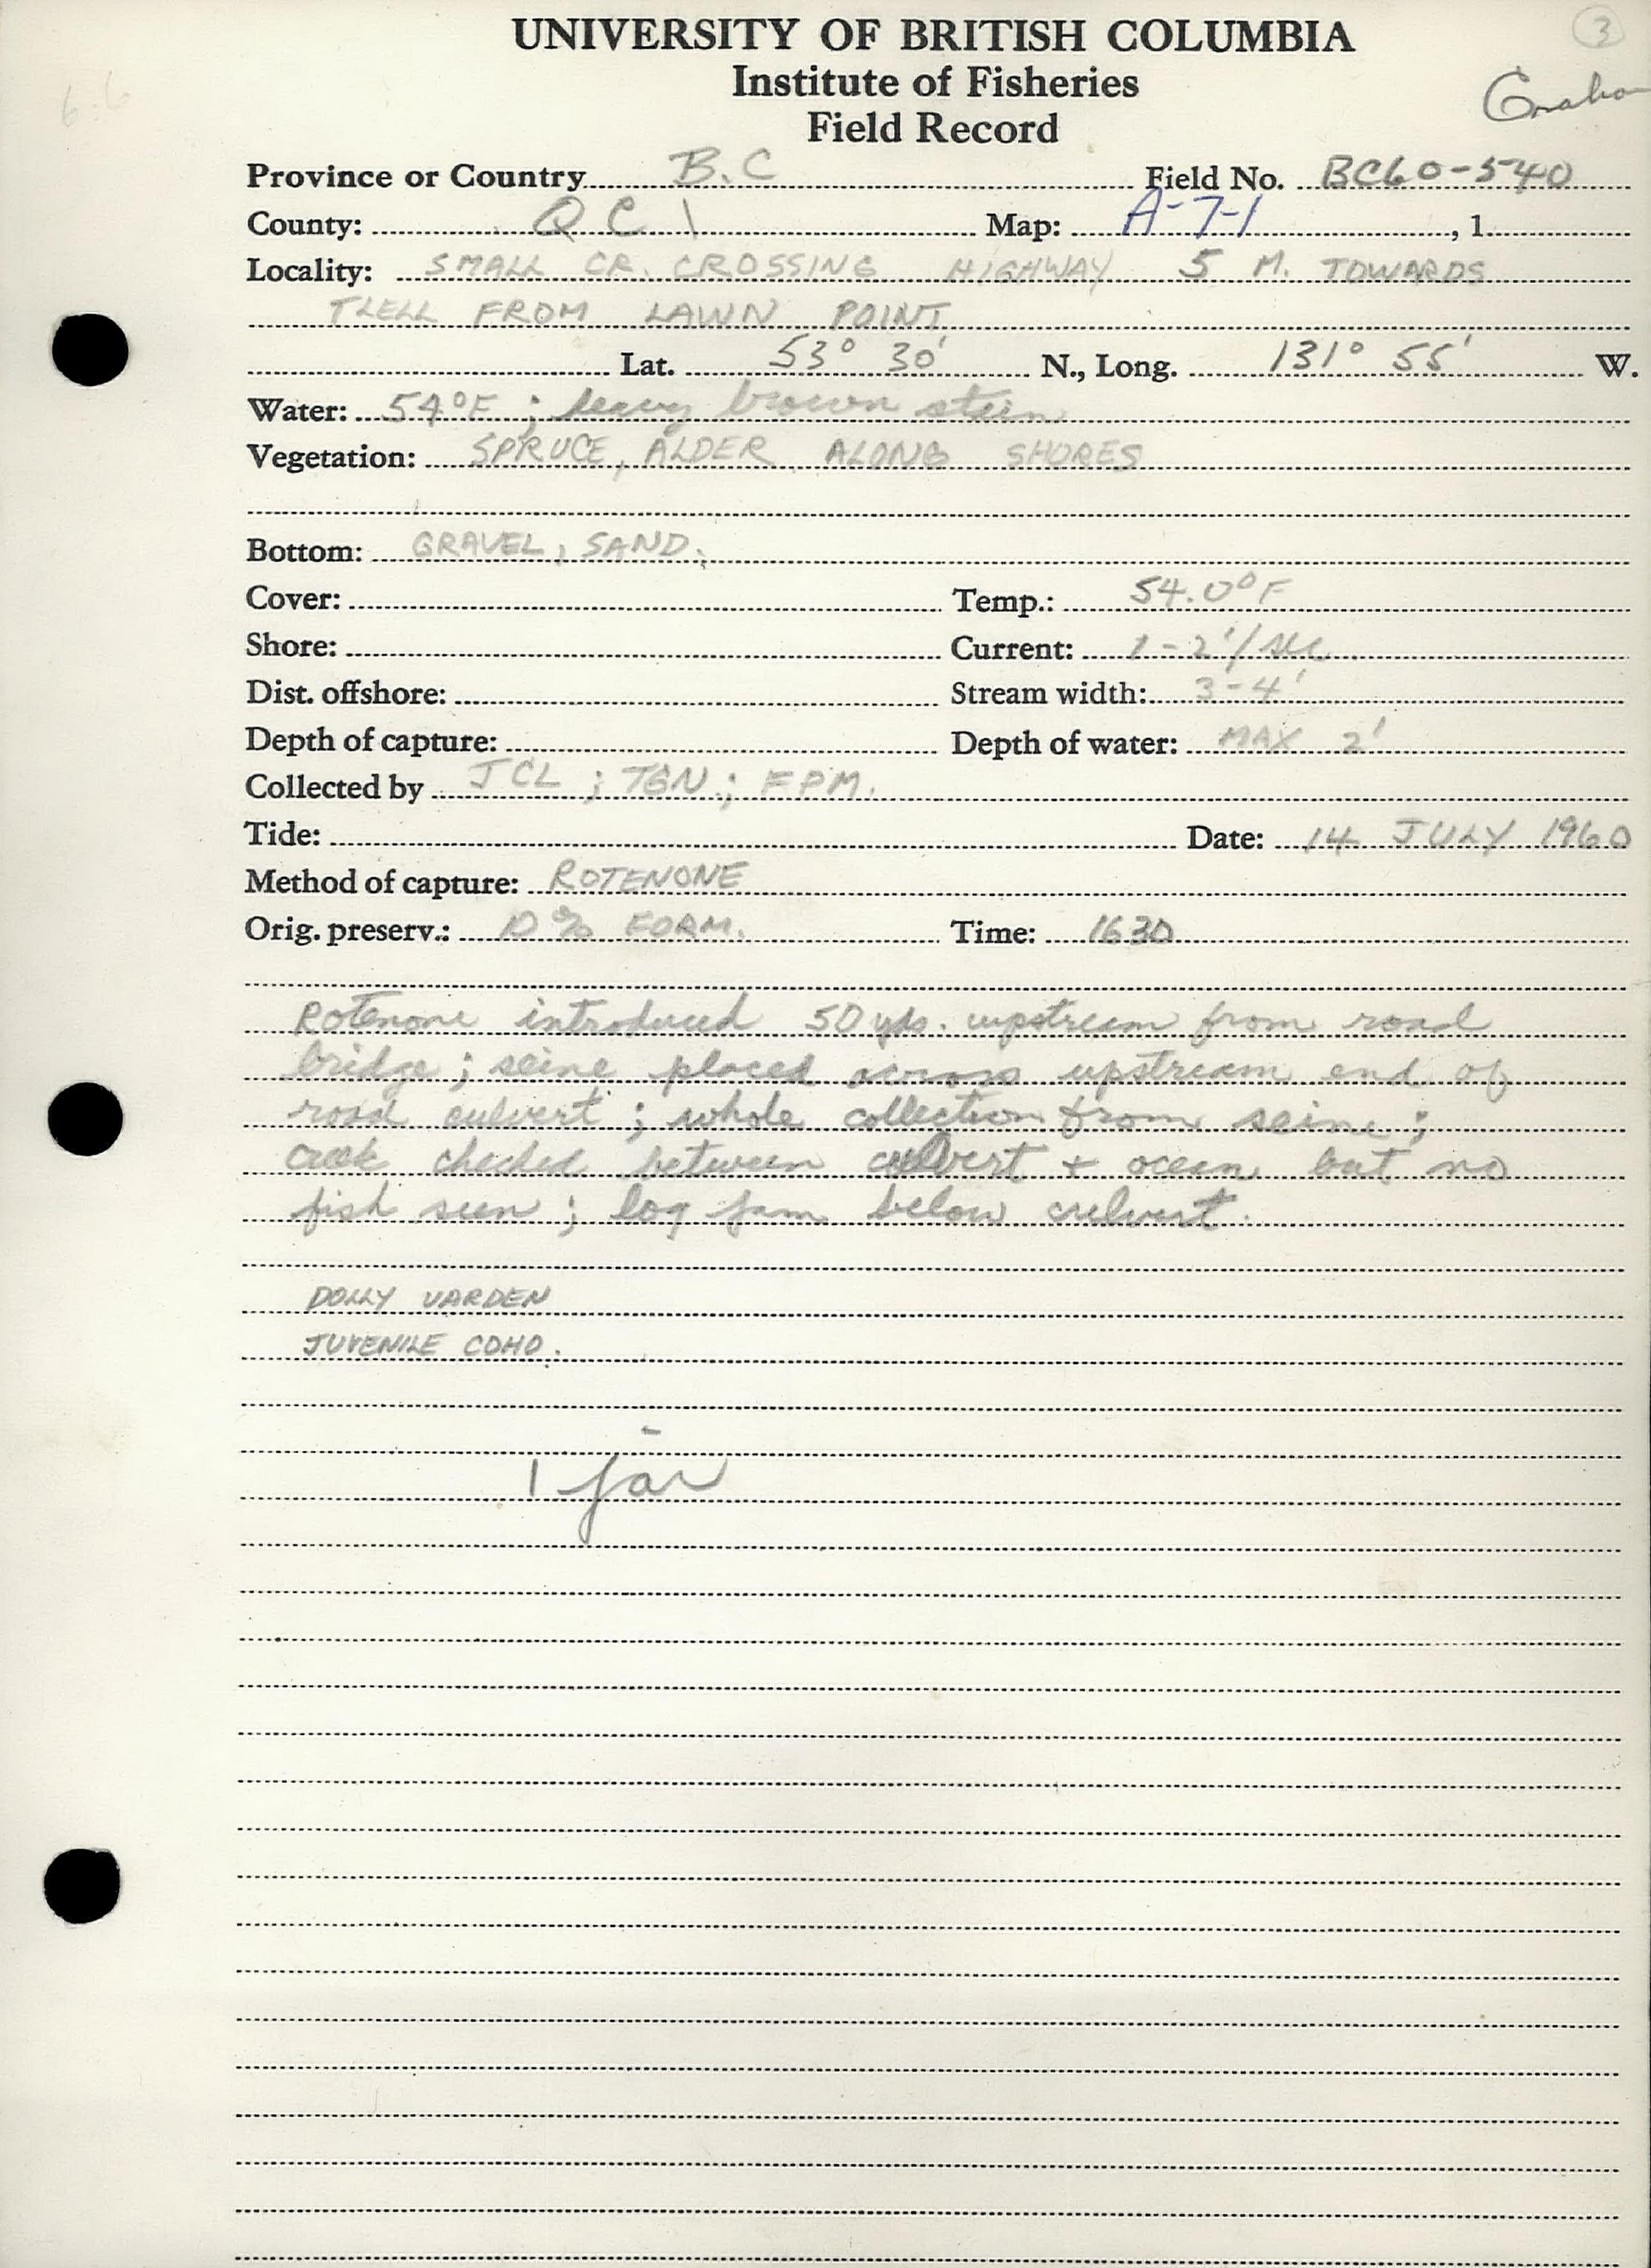 UNIVERSITY OF BRITISH COLUMBIA
3
Institute of Fisheries
Field Record
Province or Country B.C Field No. BC60-540
County: QCI Map: A-7-1, 1
Locality: SMALL CR. CROSSING HIGHWAY 5 M. TOWARDS
TLELL FROM LAWN POINT
Lat. 53° 30' N., Long. 131° 55' W.
Water: 54°F ; heavy brown stain
Vegetation: SPRUCE, ALDER ALONG SHORES
Bottom: GRAVEL, SAND.
Cover: Temp.: 54.0°F
Shore: Current: 1-2'/sec.
Dist. offshore: Stream width: 3-4'
Depth of capture: Depth of water: MAX 2'
Collected by JCL ; TGN ; FPM.
Tide: Date: 14 JULY 1960
Method of capture: ROTENONE
Orig. preserv.: 10% FORM. Time: 1630
Rotenone introduced 50 yds. upstream from road
bridge ; seine placed across upstream end of
road culvert ; whole collection from seine ;
creek checked between culvert + ocean but no
fish seen ; log jam below culvert.
DOLLY VARDEN
JUVENILE COHO.
1 jar